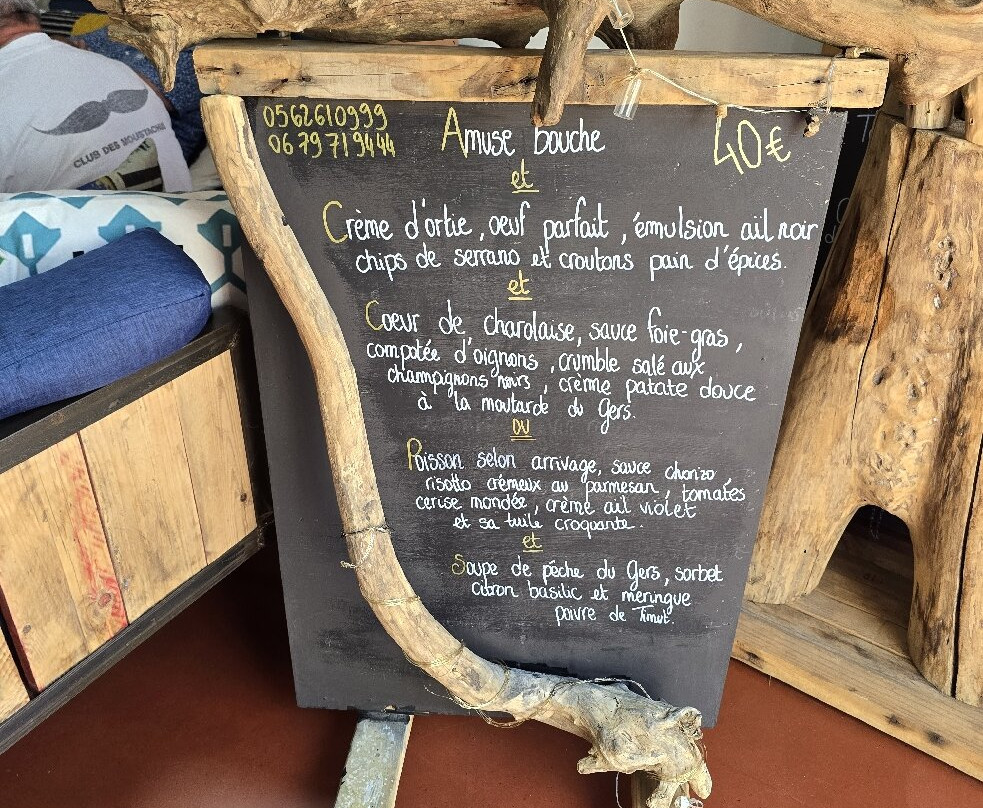 CLUB DES MOUSTACHE
0562610999
0679719444
Amuse bouche
40€
et
Crème d'ortie, oeuf parfait, émulsion ail noir
chips de serrano et croutons pain d'épices.
et
Coeur de charolaise, sauce foie-gras,
compotée d'oignons, crumble salé aux
champignons noirs, crème patate douce
à la moutarde du Gers.
OU
Poisson selon arrivage, sauce chorizo
risotto crémeux au parmesan, tomates
cerise mondée, crème ail violet
et sa tuile croquante.
et
Soupe de pêche du Gers, sorbet
citron basilic et meringue
poivre de Timut.